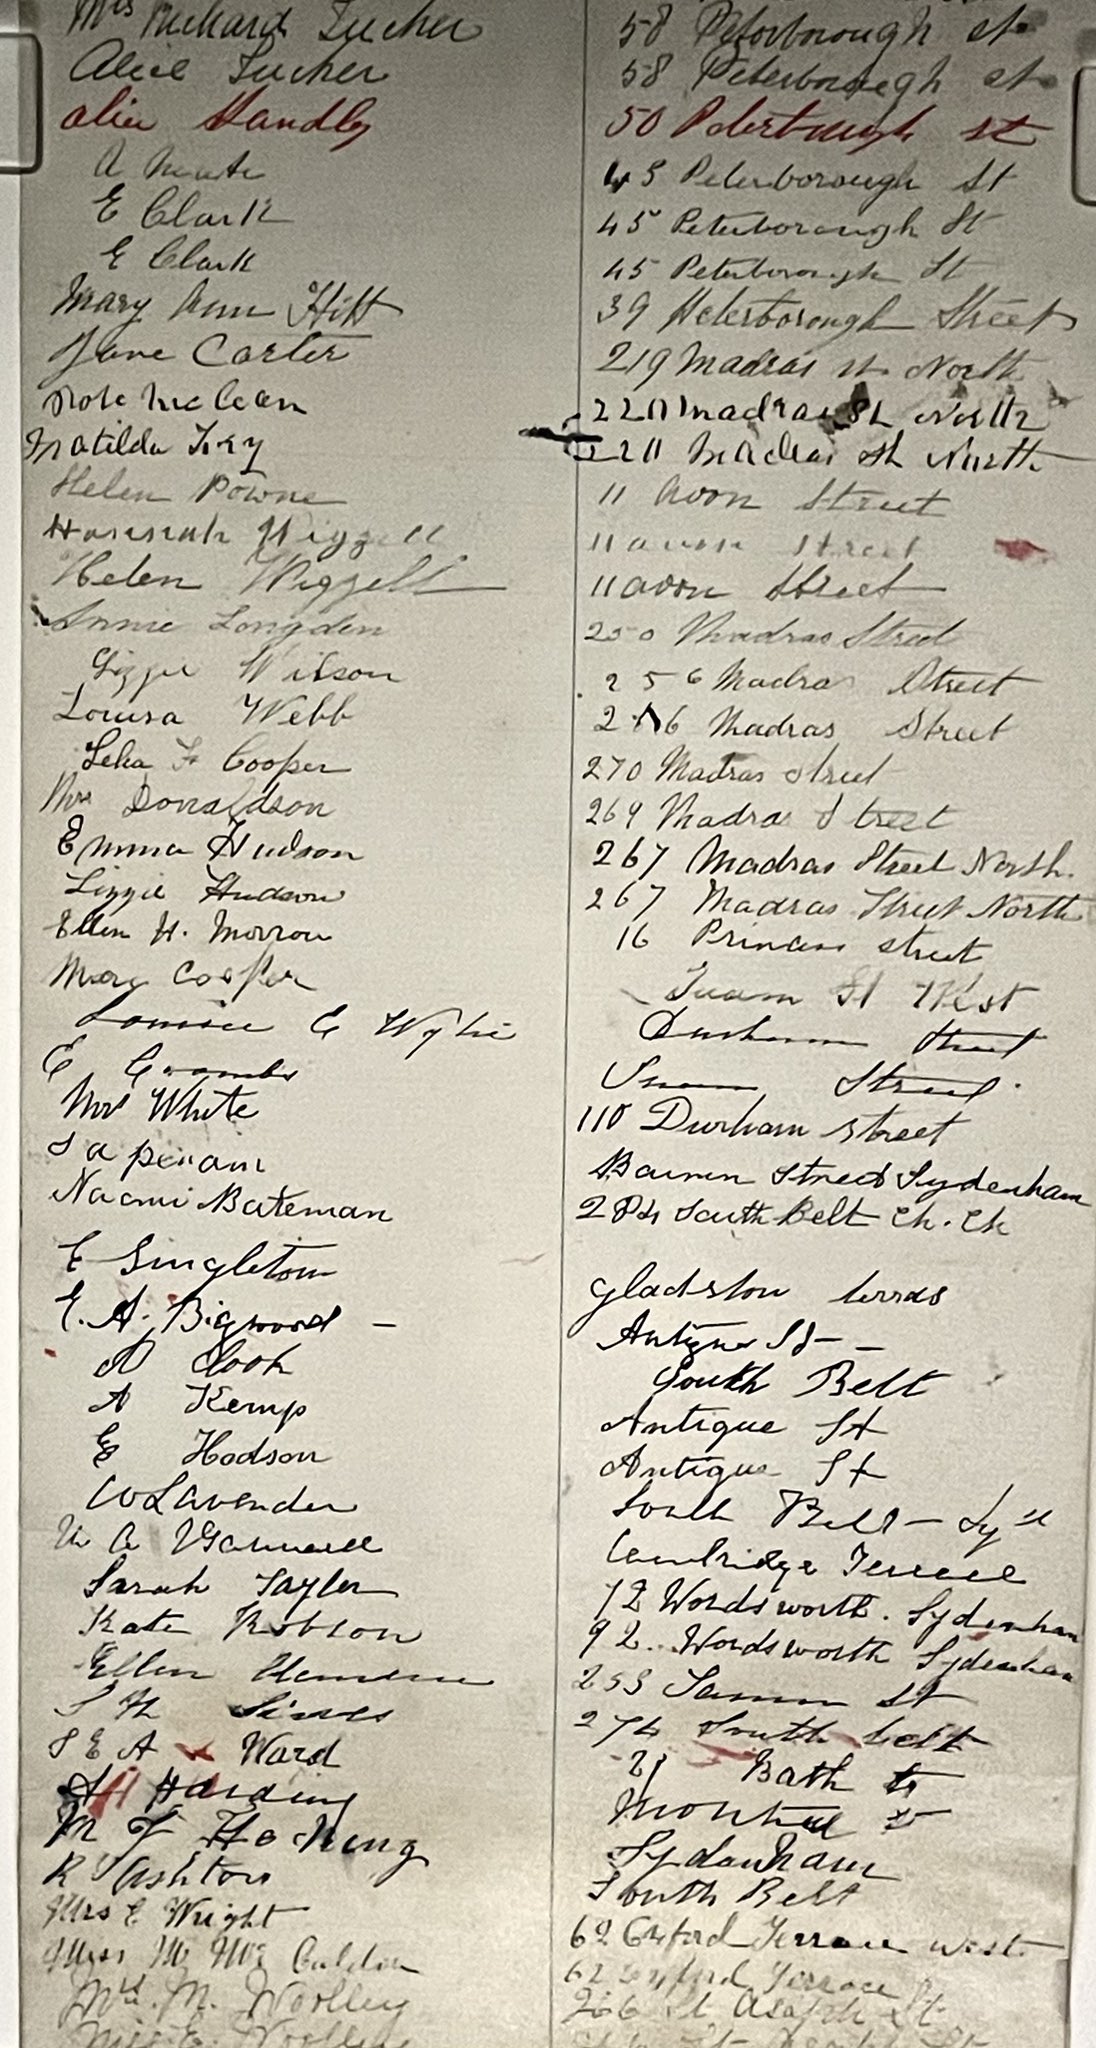 Mrs Richard Tucker 58 Peterborough st
Alice Tucker 58 Peterborough st
alice Handley 50 Peterbrough st
A 45 Peterborough St
E Clark 45 Peterborough St
E Clark 45 Peterborough St
Mary Ann Hitt 39 Peterborough Street
Jane Carter 219 Madras st North
Rose McClean 220 madras St North
Matilda Ivey 220 Madras St North
Helen Powne 11 Avon Street
Hannah Wiggell 11 avon Street
Helen Wiggell 11 avon Street
Annie Longden 250 Madras Street
Lizzie Wilson 256 Madras Street
Louisa Webb 2 6 Madras Street
Leha F Cooper 270 Madras Street
Mrs Donaldson 269 Madras Street
Emma Hudson 267 Madras Street North.
Lizzie Hudson 267 Madras Street North
Ellen H. Morrow 16 Princess street
Mary Cooper Tuam St West
Louisa E Wylie Durham Street
E Coombs Street.
Mrs White 110 Durham street
Street Sydenham
Naomi Bateman 284 South Belt Ch. Ch
E Singleton gladston terras
E. A. Bigwood – St –
A Cook South Belt
A Kemp Antique St
E Hodson Antique St
W Lavender South Belt – Sy
Cambridge Terrace
Sarah Taylor 72 Wordsworth. Sydenham
Kate Robson 92. Wordsworth Sydenham
Ellen 253 St
274 South belt
S E A Ward 21 Bath
Harding Montreal
M J Hocking Sydenham
R Ashton South Belt
Mrs E Wright 62 Oxford Terrace west
Miss M Mc 62 Oxford Terrace
Mrs. M. Woolley 266 St Asaph St
Miss E. Woolley St Asaph St